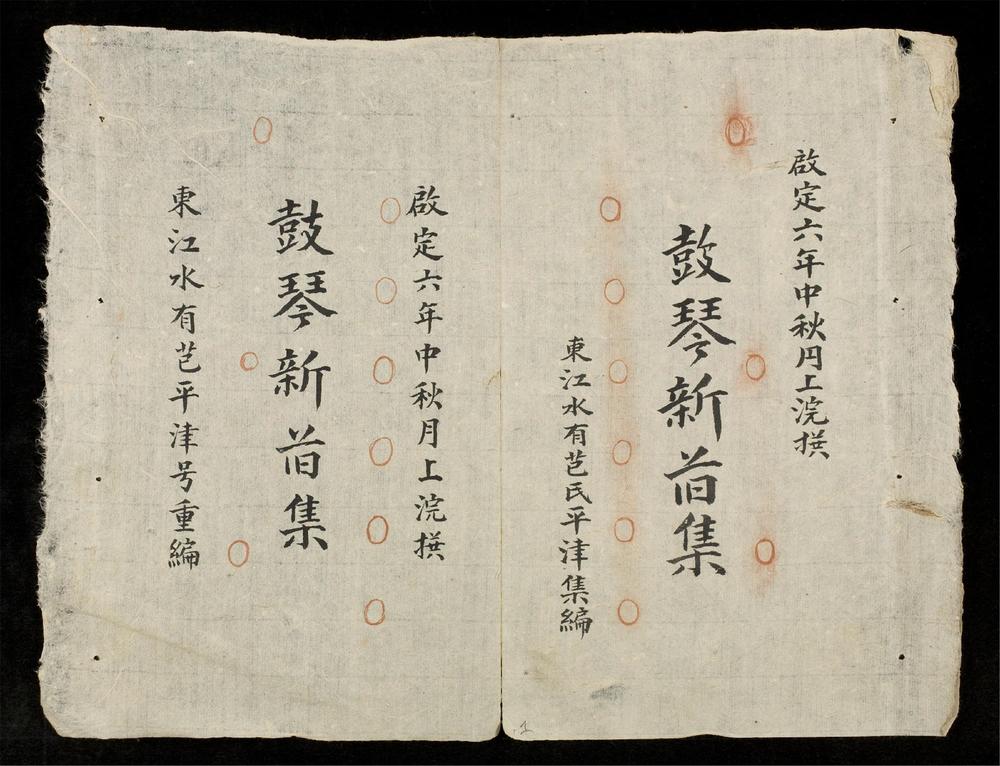 啟定六年中秋円上浣撰
鼓琴新㫺集
東江水有芑氏平津集編
啟定六年中秋月上浣撰
鼓琴新㫺集
東江水有芑平津号重編
1